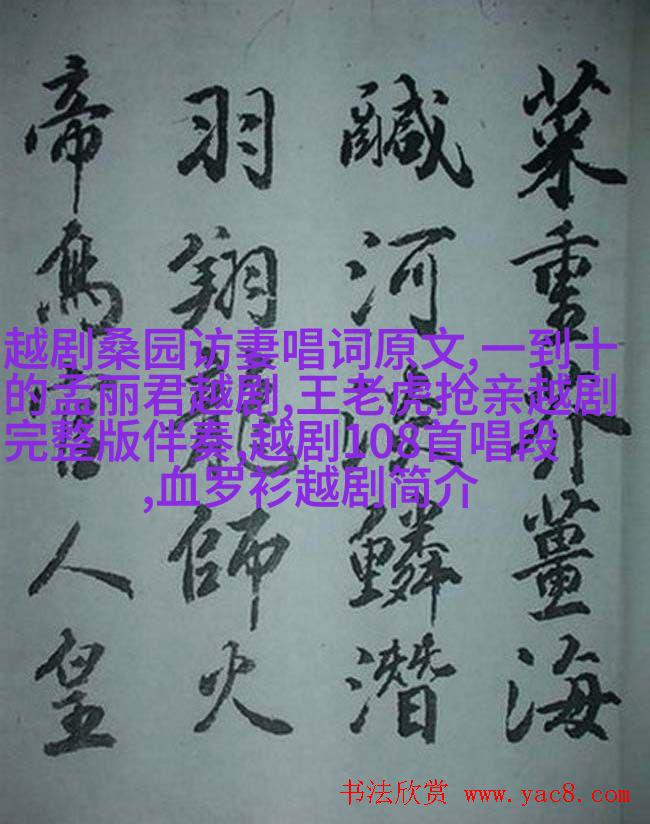 菜重芥薑海
醎河淡鱗潛
羽翔龍師火
帝鳥官人皇
越剧桑园访妻唱词原文,一到十
的孟丽君越剧,王老虎抢亲越剧
完整版伴奏,越剧108首唱段
,血罗衫越剧简介
书法欣赏 www.yac8.com